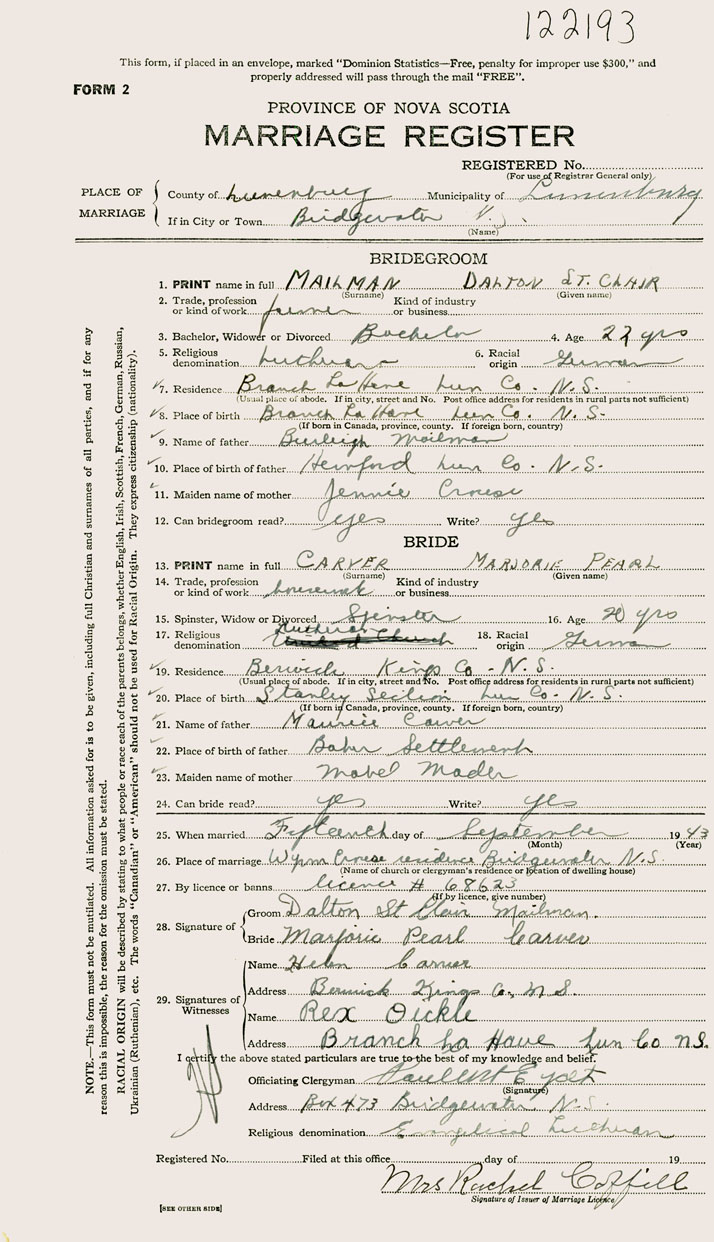 122193
This form, if placed in an envelope, marked "Dominion Statistics—Free, penalty for improper use $300," and
properly addressed will pass through the mail "FREE".
FORM 2
PROVINCE OF NOVA SCOTIA
MARRIAGE REGISTER
REGISTERED No.
(For use of Registrar General only)
PLACE OF MARRIAGE
County of Lunenburg Municipality of Lunenburg
If in City or Town Bridgewater N.S.
(Name)
BRIDEGROOM
1. PRINT name in full MAILMAN DALTON ST. CLAIR
(Surname) (Given name)
2. Trade, profession or kind of work farmer Kind of industry or business
3. Bachelor, Widower or Divorced Bachelor 4. Age 22 yrs
5. Religious denomination Lutheran 6. Racial origin German
7. Residence Branch La Have Lun Co. N.S.
(Usual place of abode. If in city, street and No. Post office address for residents in rural parts not sufficient)
8. Place of birth Branch La Have Lun Co. N.S.
(If born in Canada, province, county. If foreign born, country)
9. Name of father Burleigh Mailman
10. Place of birth of father Hemford Lun Co. N.S.
11. Maiden name of mother Jennie Crouse
12. Can bridegroom read? yes Write? yes
BRIDE
13. PRINT name in full CARVER MARJORIE PEARL
(Surname) (Given name)
14. Trade, profession or kind of work housework Kind of industry or business
15. Spinster, Widow or Divorced Spinster 16. Age 20 yrs
17. Religious denomination Lutheran United Church 18. Racial origin German
19. Residence Berwick Kings Co. N.S.
(Usual place of abode. If in city, street and No. Post office address for residents in rural parts not sufficient)
20. Place of birth Stanley Section Lun Co. N.S.
(If born in Canada, province, county. If foreign born, country)
21. Name of father Maurice Carver
22. Place of birth of father Baker Settlement
23. Maiden name of mother Mabel Mader
24. Can bride read? yes Write? yes
25. When married Fifteenth day of September 1943
(Month) (Year)
26. Place of marriage Wynn Crouse residence Bridgewater N.S.
(Name of church or clergyman's residence or location of dwelling house)
27. By licence or banns licence # 68623
(If by licence, give number)
28. Signature of
Groom Dalton St Clair Mailman.
Bride Marjorie Pearl Carver
29. Signatures of Witnesses
Name Helen Carver
Address Berwick Kings Co, N.S.
Name Rex Oickle
Address Branch La Have Lun Co N.S.
I certify the above stated particulars are true to the best of my knowledge and belief.
Officiating Clergyman
(Signature)
Address Box 473 Bridgewater, N.S.
Religious denomination Evangelical Lutheran
Registered No. Filed at this office day of 19
Mrs Rachel Coffill
Signature of Issuer of Marriage Licence
[SEE OTHER SIDE]
NOTE.—This form must not be mutilated. All information asked for is to be given, including full Christian and surnames of all parties, and if for any
reason this is impossible, the reason for the omission must be stated.
RACIAL ORIGIN will be described by stating to what people or race each of the parents belongs, whether English, Irish, Scottish, French, German, Russian,
Ukrainian (Ruthenian), etc. The words "Canadian" or "American" should not be used for Racial Origin. They express citizenship (nationality).